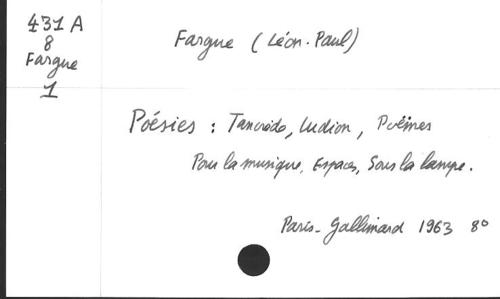 431 A
8
Fargue
1
Fargue (Léon-Paul)
Poésies : Tancrède, Ludion, Poëmes
Pour la musique, Espaces, Sous la lampe.
Paris - Gallimard 1963 8°